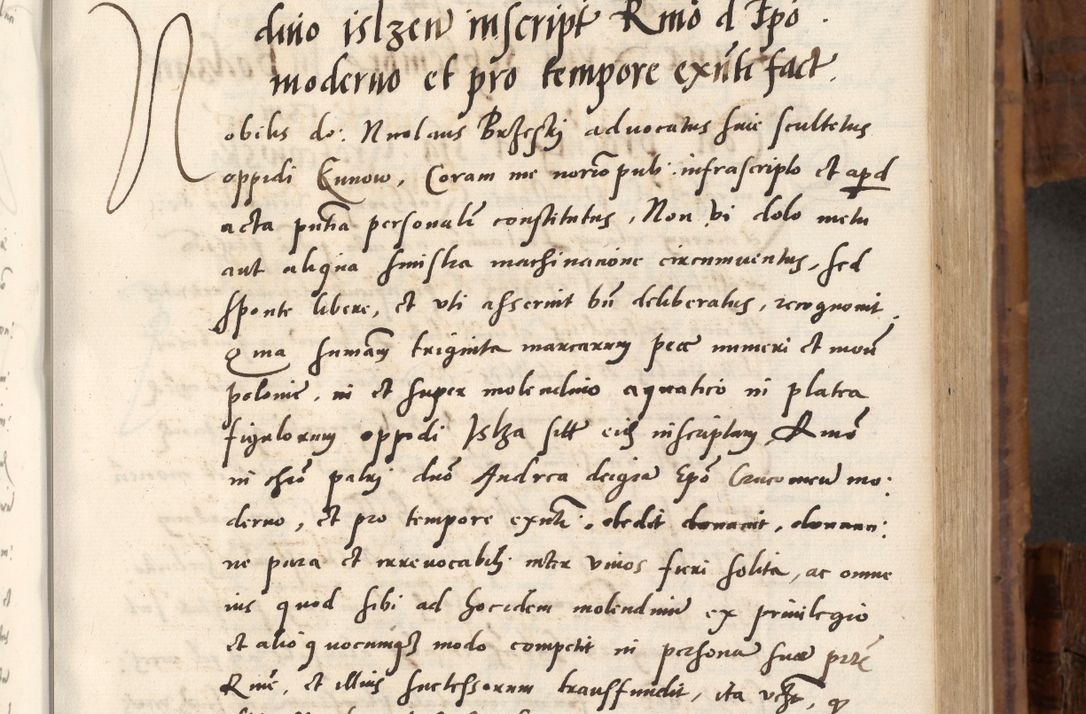 dino islzen inscript Rmo d Epo
moderno et pro tempore exnti fact.
Nobilis do: Nicolaus Brzeski advocatus sive scultetus
oppidi Kunow, Coram me norio pub: infrascripto et apud
acta pntia personalr constitutus, Non vi dolo metu
aut aliqua sinistra machinacione circumventus, sed
sponte libere, et uti asseruit bn deliberatus, recognovit.
Q ma sumam triginta marcarum pecc numeri et mon
polonie, in et super molendino aquatico in platea
figulorum oppidi Islza sitt eids inscriptam Rmo
in chro patri dno Andrea dei gia Epo Cracovieu mo:
derno, et pro tempore exnti. dedit donavit, donatio:
ne pura et irrevocabili inter vivos fieri solita, ac omne
ius quod sibi ad hocidem molendinu ex privilegio
et alio quocunqz modo competit in persona sua prte
Rme, et illius successorum transfundit, ita